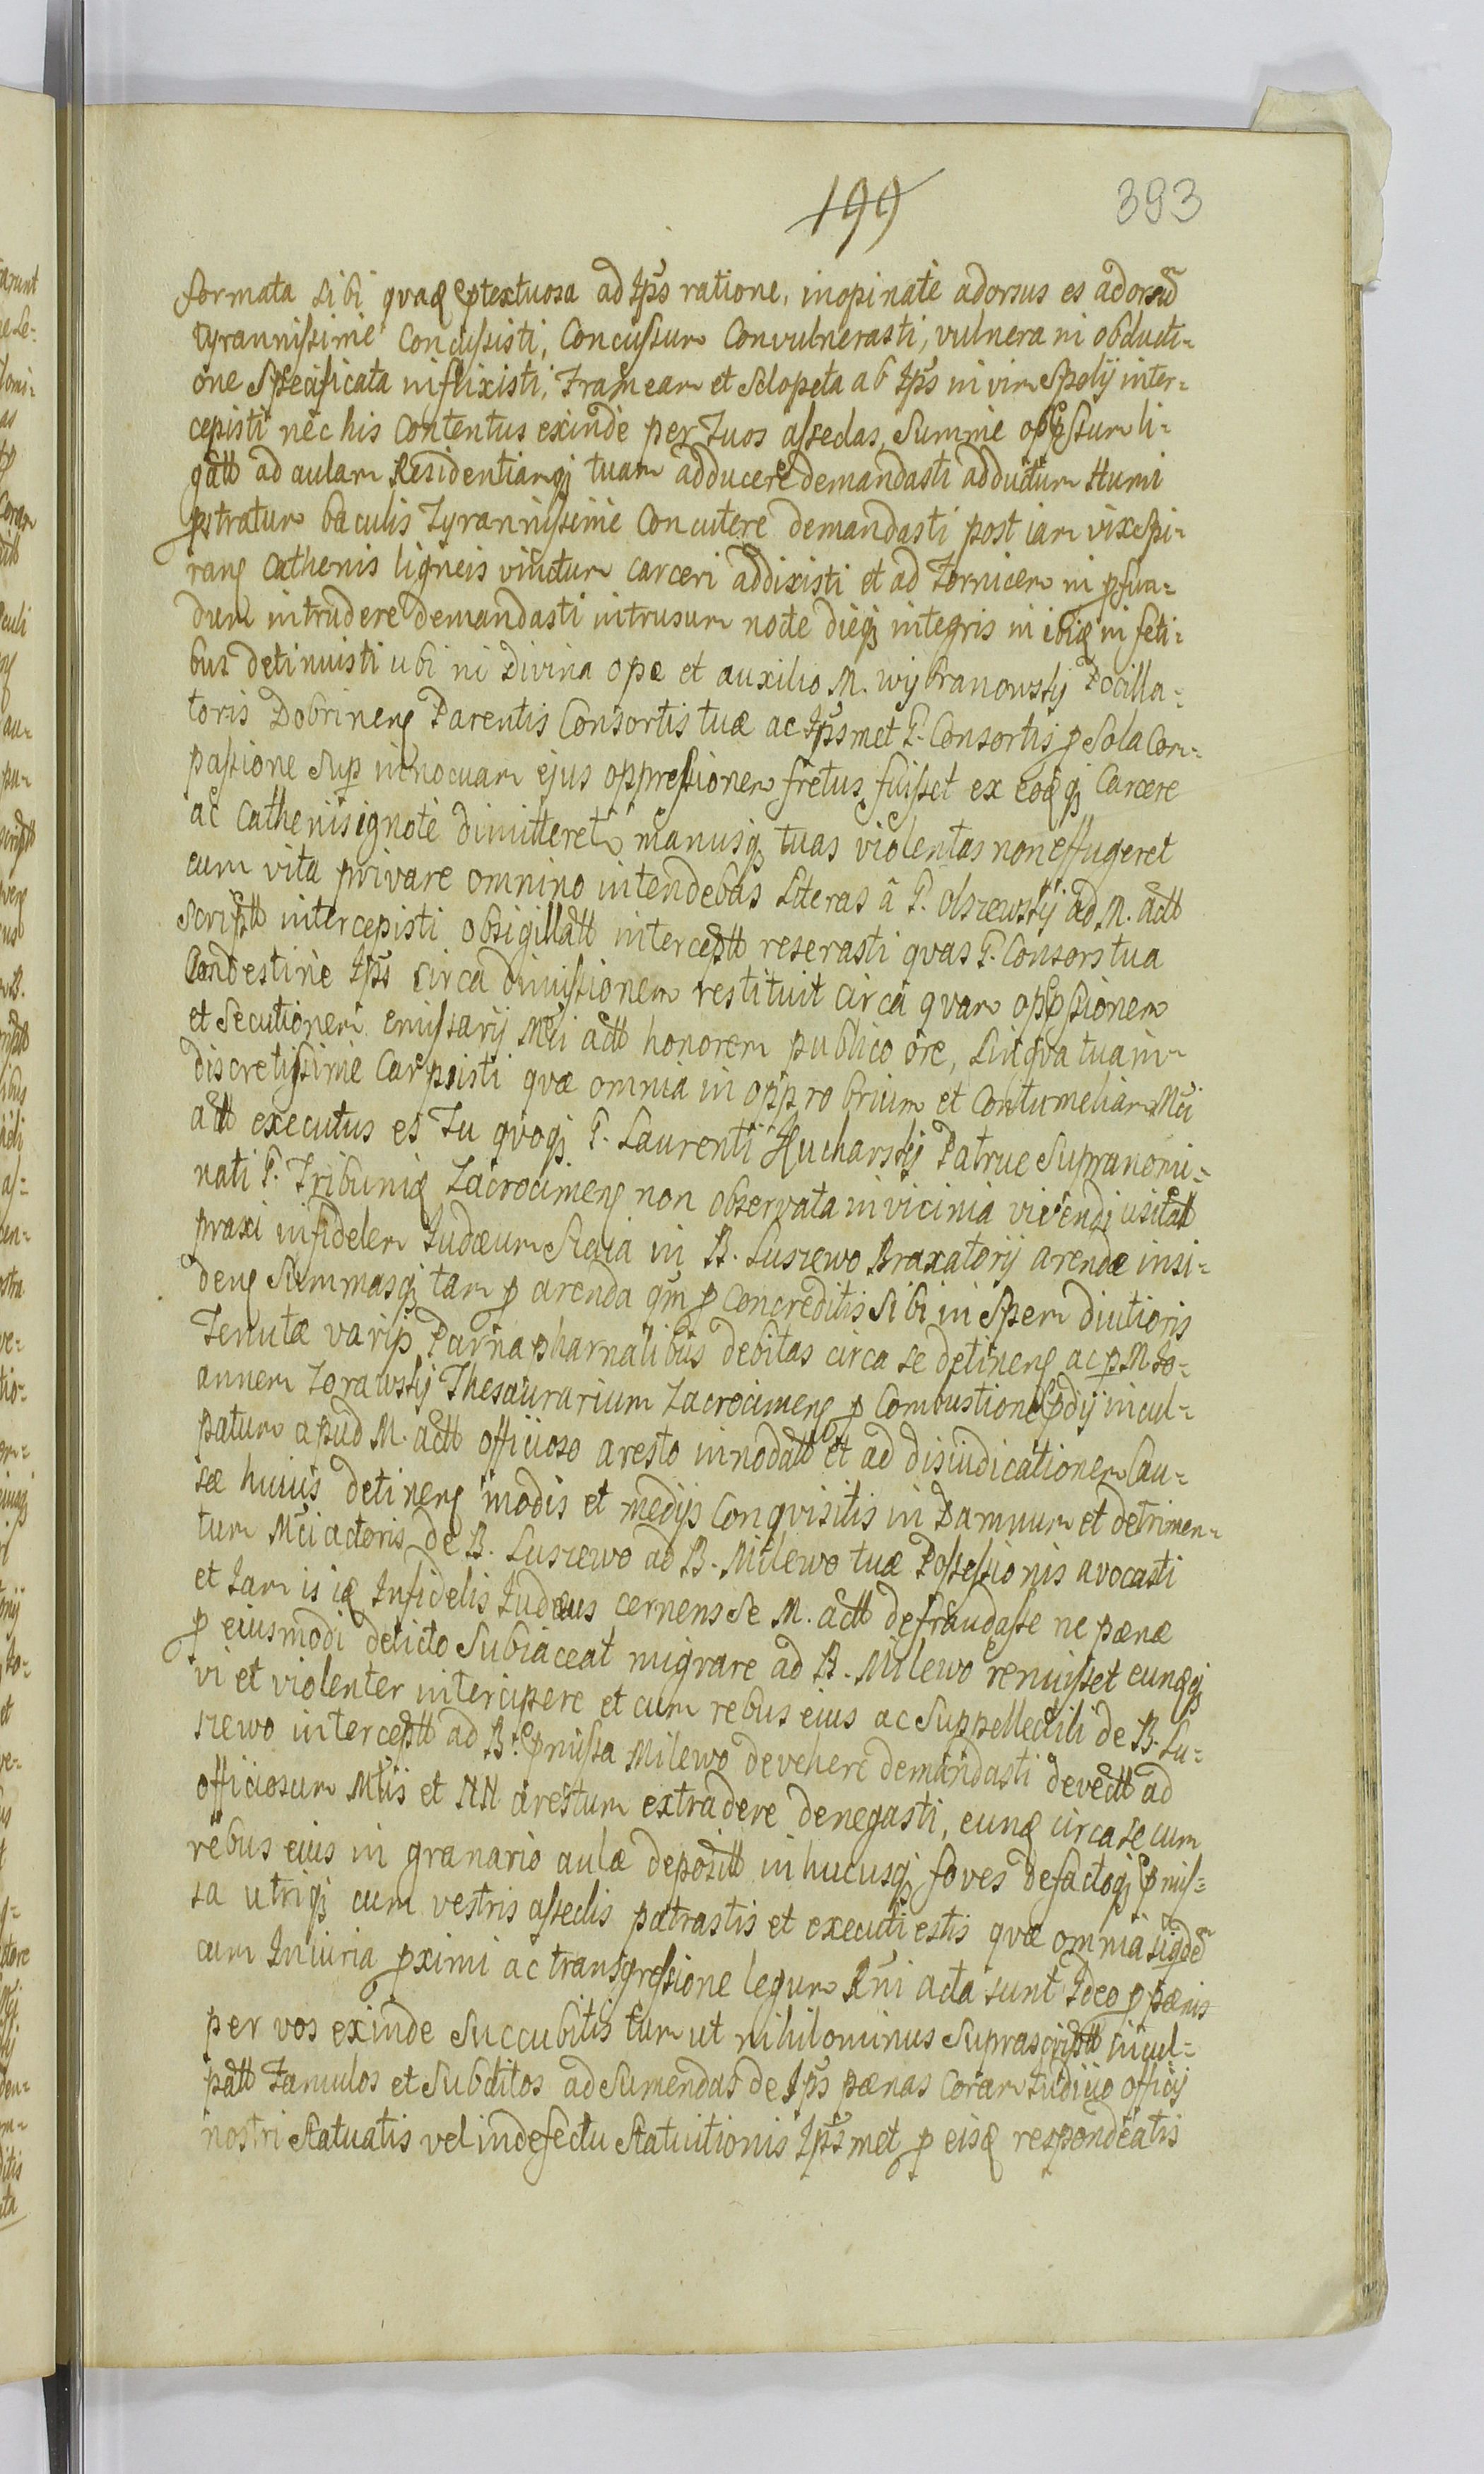 199 393
formata sibi quaq ptextuosa ad Ips ratione, inopinate adorsus es adorsu
tyrannissime Concussisti, Concussum Convulnerasti, vulnera in obducti-
one Specificata inflixisti, Frameam et Sclopeta ab Ips in vim Spolij inter-
cepisti nec his Contentus exinde per Tuos assedas, Summe oppressum li-
gatt ad aulam Residentiamqj tuam adducere demandasti adductum Humi
pstratum baculis Tyrannissime Concutere demandasti post iam vix Spi-
rans Cathenis ligneis vinctum carceri addixisti et ad Fornicem in pfun-
dum intrudere demandasti intrusum nocte dieqj integris in ibiq in feti-
bus detinuisti ubi ni Divina ope et auxilio M. Wybranowskj Pocilla-
toris Dobrinens Parentis Consortis tuæ ac Ipsmet G. Consortis p Sola Com-
passione Sup innocuam ejus oppressionem fretus fuisset ex eoqj Carcere
ac Cathenis ignote dimitteret manusqj tuas violentas non effugeret
eum vita privare omnino intendebas Literas â G. Olszewskj ad M. actt
Scriptt intercepisti obsigillatt interceptt reserasti quas G. Consors tua
Clandestine Ips circa dimissionem restituit circa quam oppssionem
et Secutionem emissarij Mci actt honorem publico ore, Lingua tua in-
discretissime Carpsisti quæ omnia in opprobrium et Contumeliam Mci
att executus es Tu quoqj G. Laurenti Hucharskj Patrue Supranomi-
nati G. Tribuniq Zacrocimens non observata in vicinia vivendi usitatt
praxi infidelem Judæum Szaia in B. Luszewo Braxatorij arendæ insi-
dens Summasqj tam p arenda qm p Concreditis Sibi in Spem diutioris
Tenutæ varijs Parnapharnalibus debitas circa se detinens ac p M. Jo-
annem Zorawskj Thesaurarium Zacrocimens p Combustione pdij incul-
patum apud M. actt officioso aresto innodatt et ad disiudicationem Cau-
sæ huius detinens modis et medijs Conquisitis in Damnum et detrimen-
tum Mci actoris de B. Luszewo ad B. Milewo tuæ Possessionis avocasti
et Jam is iq Infidelis Judæus cernens Se M. actt defraudasse ne pænæ
p eiusmodi delicto Subiaceat migrare ad B. Milewo renuisset eunqqj
vi et violenter intercipere et cum rebus eius ac Suppellectili de B. Lu-
szewo interceptt ad B. pmissa Milewo devehere demandasti devectt ad
officiosum Mtis et NN arestum extradere denegasti, eunq circa se cum
rebus eius in granario aulæ depositt in hucusqj foves defactoqj pmis-
sa utriqj cum vestris assedis patrastis et executi estis quæ omnia siqdē
cum Iniuria pximi ac transgressione legum Rni acta sunt Ideo p pænis
per vos exinde Succubitis tum ut nihilominus Suprascriptt incul-
patt Famulos et Subditos ad Sumendas de Ips pænas Coram Judiijo officij
nostri Statuatis vel in defectu Statuitionis Ipsmet p eisq respondeatis